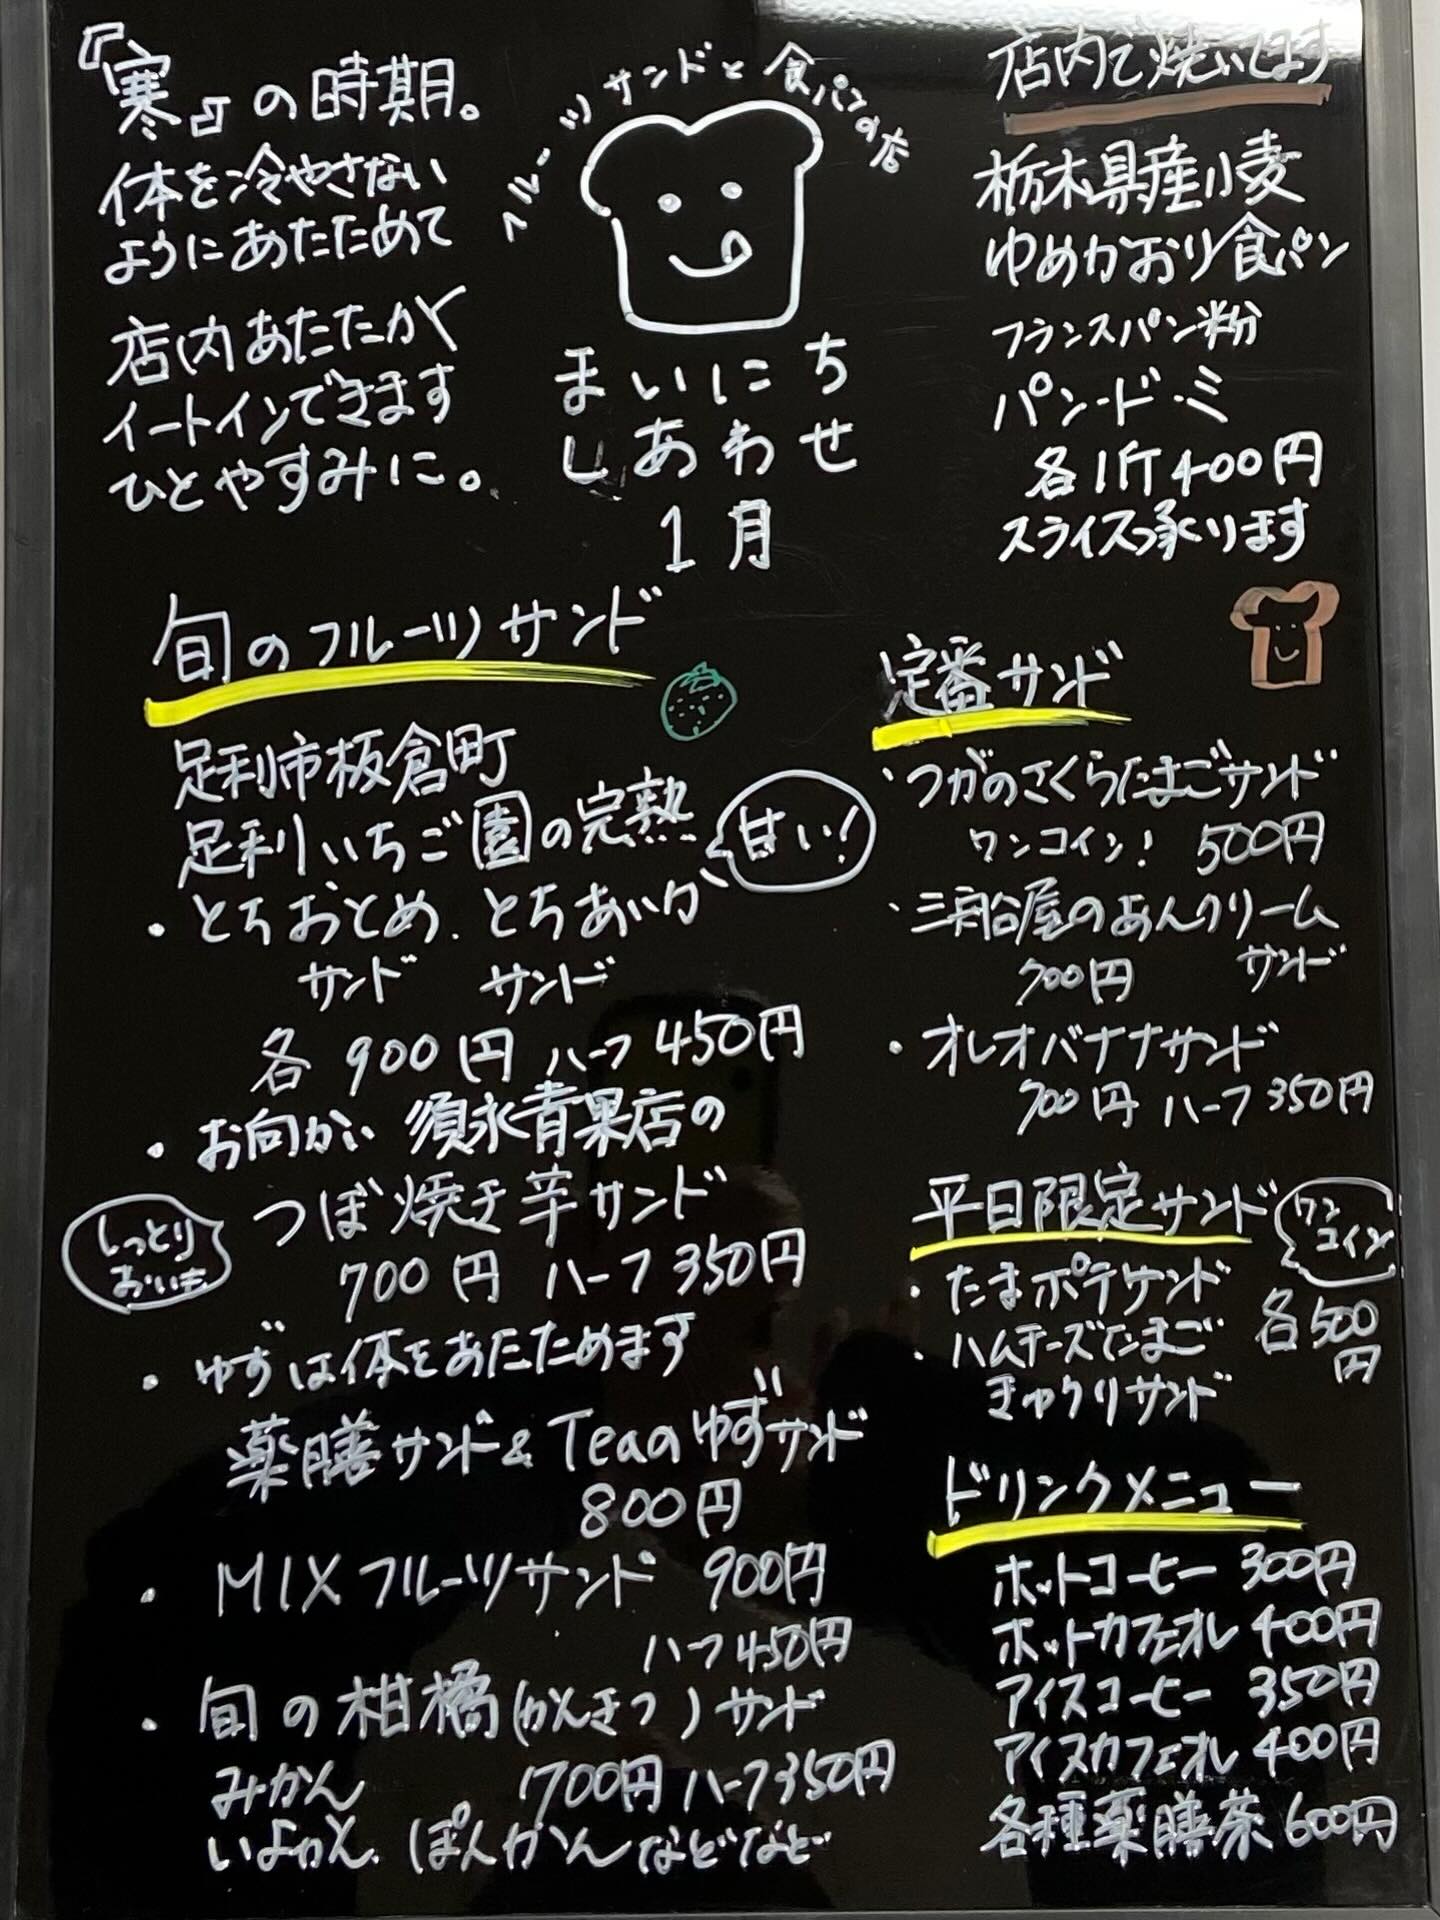 『寒』の時期。
体を冷やさない
ようにあたためて
店内あたたかく
イートインできます
ひとやすみに。
フルーツサンドと食パンの店
まいにち
しあわせ
1月
店内で焼いてます
栃木県産小麦
ゆめかおり食パン
フランスパン粉
パン・ド・ミ
各1斤400円
スライス承ります
旬のフルーツサンド
足利市板倉町
足利いちご園の完熟
甘い!
・とちおとめ、とちあいか
サンド サンド
各900円 ハーフ450円
・お向かい 須永青果店の
つぼ焼き芋サンド
しっとり
おいも
700円 ハーフ350円
・ゆずは体をあたためます
薬膳サンド&Teaのゆずサンド
800円
・MIXフルーツサンド 900円
ハーフ450円
・旬の柑橘(かんきつ)サンド
みかん 700円 ハーフ350円
いよかん、ぽんかんなどなど
定番サンド
・つがのさくらたまごサンド
ワンコイン! 500円
・三舟谷屋のあんクリーム
サンド
700円
・オレオバナナサンド
700円 ハーフ350円
平日限定サンド
ワン
コイン
・たまポテサンド
・ハムチーズたまご
きゅうりサンド
各500
円
ドリンクメニュー
ホットコーヒー 300円
ホットカフェオレ 400円
アイスコーヒー 350円
アイスカフェオレ 400円
各種薬膳茶 600円